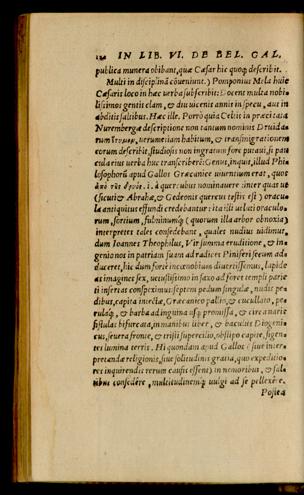 124 IN LIB. VI. DE BEL. GAL.
publica munera obibant, quæ Cæsar hic quoq; describit.
Multi in disciplinā cōueniunt.) Pomponius Mela huic
Cæsaris loco in hæc verba subscribit: Docent multa nobi-
lissimos gentis clam, & diu vicenis annis in specu, aut in
abditis saltibus. Hæc ille. Porrò quia Celtis in præcitata
Nurembergæ descriptione non tantum nominis Druida-
rum, verumetiam habitum, & transmigrationem
eorum describit, studiosis non ingratum fore putaui, si pau
cula eius verba huc transcriberē: Genus, inquit, illud Phi
losophorū apud Gallos Græcanicè viuentium erat, quos
i. à quercubus nominauere inter quas ut
(sicuti & Abrahæ, & Gedeonis quercus testis est) oracu-
la antiquitus effundi credebatur: ita isti uelati oraculo-
rum, sortium, fulminumq; (quorum illa arbor obnoxia)
interpretes tales consedebant, quales nudius uidimur,
dum Ioannes Theophilus, Vir summa eruditione, & in-
genio nos in patriam suam ad radices Piniferi secum ad-
duceret, hic dum fortè in cœnobium diuertissemus, lapide
as imagines sex, uetustissimo in saxo ad fores templi parie
ti insertas conspeximus: septem pedum singulæ, nudis pe
dibus, capita intectæ, Græcanico pallio, & cucullato, pe-
rulaq;, & barba ad inguina usq; promissa, & circa naris
fistulas bifurcata, in manibus liber, & baculus Diogeni-
cus, seuera fronte, & tristi supercilio, obstipo capite, figen-
tes lumina terris. Hi quondam apud Gallos siue inter-
pretandæ religionis, siue solitudinis gratia, quo expeditio-
res inquirendis rerum causis essent) in nemoribus, & sal-
tibus consedêre, multitudinemq; uulgi ad se pellexêre.
Postea